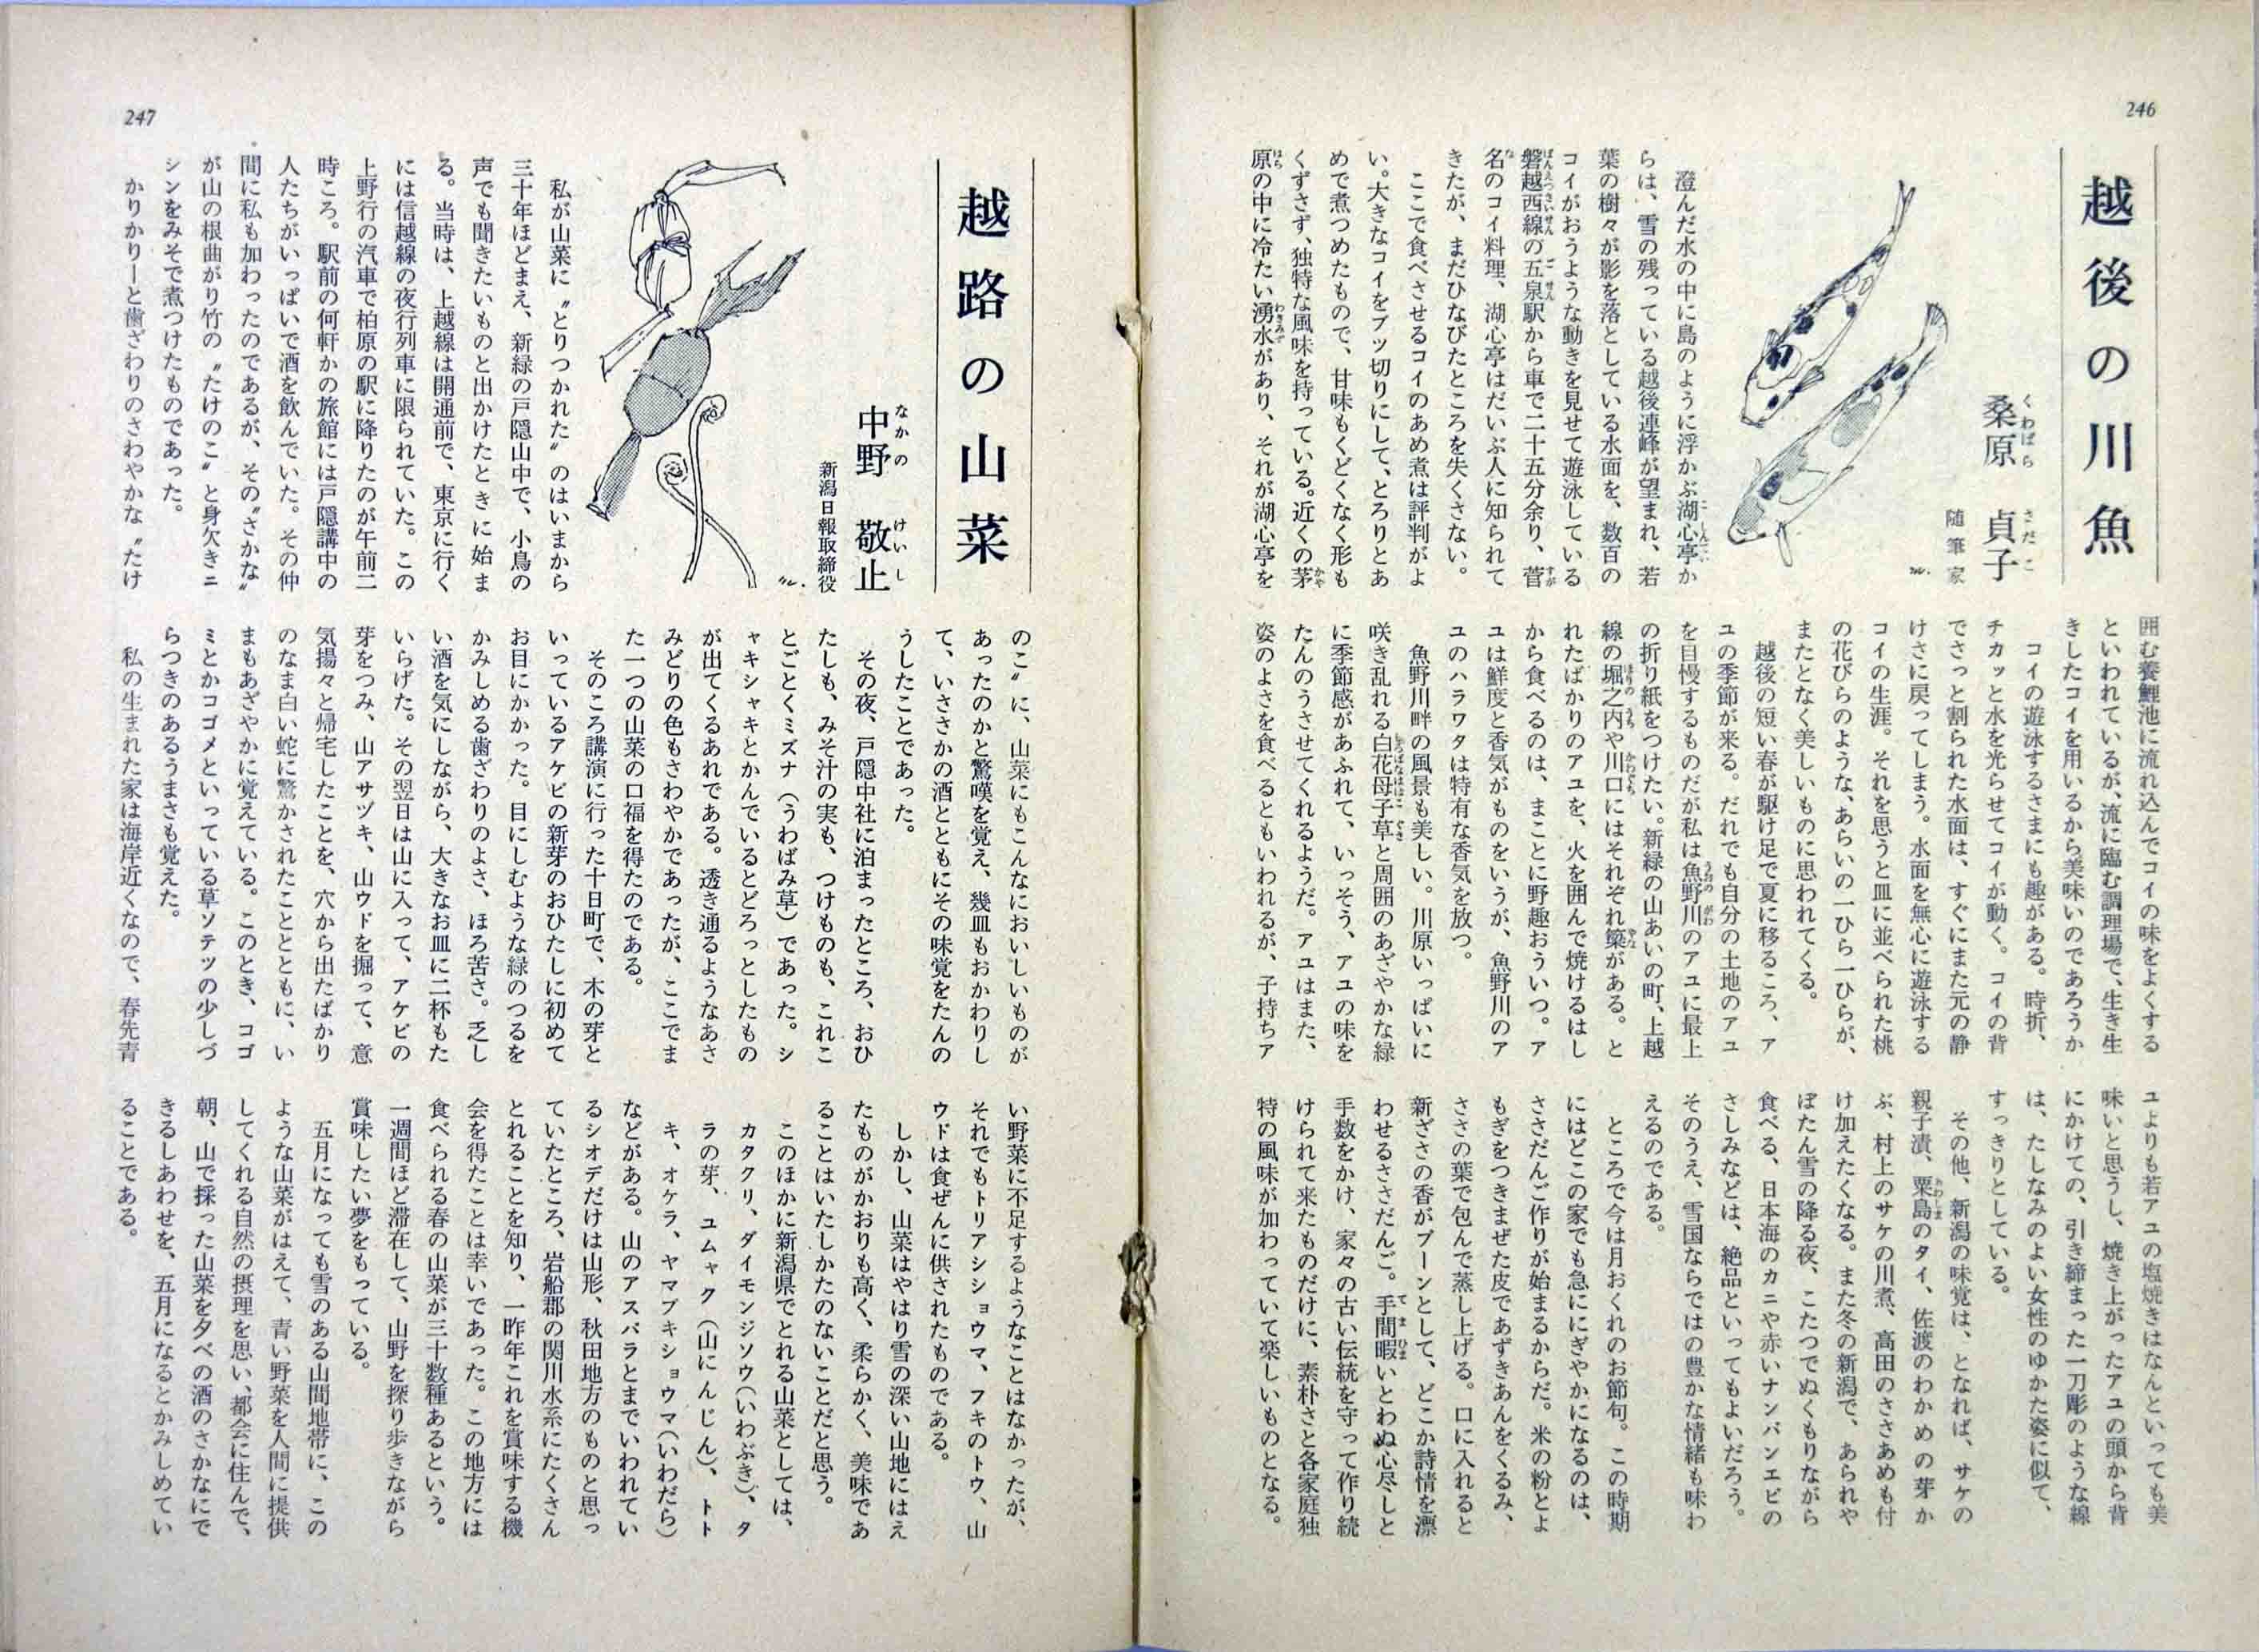 246
越後の川魚
くわばら さだこ
桑原 貞子
随筆家
澄んだ水の中に島のように浮かぶ湖心亭か
らは、雪の残っている越後連峰が望まれ、若
葉の樹々が影を落としている水面を、数百の
コイがおうような動きを見せて遊泳している
磐越西線の五泉駅から車で二十五分余り、菅
名のコイ料理、湖心亭はだいぶ人に知られて
きたが、まだひなびたところを失くさない。
ここで食べさせるコイのあめ煮は評判がよ
い。大きなコイをブツ切りにして、とろりとあ
めで煮つめたもので、甘味もくどくなく形も
くずさず、独特な風味を持っている。近くの茅
原の中に冷たい湧水があり、それが湖心亭を
囲む養鯉池に流れ込んでコイの味をよくする
といわれているが、流に臨む調理場で、生き生
きしたコイを用いるから美味いのであろうか
コイの遊泳するさまにも趣がある。時折、
チカッと水を光らせてコイが動く。コイの背
でさっと割られた水面は、すぐにまた元の静
けさに戻ってしまう。水面を無心に遊泳する
コイの生涯。それを思うと皿に並べられた桃
の花びらのような、あらいの一ひら一ひらが、
またとなく美しいものに思われてくる。
越後の短い春が駆け足で夏に移るころ、ア
ユの季節が来る。だれでも自分の土地のアユ
を自慢するものだが私は魚野川のアユに最上
の折り紙をつけたい。新緑の山あいの町、上越
線の堀之内や川口にはそれぞれ簗がある。と
れたばかりのアユを、火を囲んで焼けるはし
から食べるのは、まことに野趣おういつ。ア
ユは鮮度と香気がものをいうが、魚野川のア
ユのハラワタは特有な香気を放つ。
魚野川畔の風景も美しい。川原いっぱいに
咲き乱れる白花母子草と周囲のあざやかな緑
に季節感があふれて、いっそう、アユの味を
たんのうさせてくれるようだ。アユはまた、
姿のよさを食べるともいわれるが、子持ちア
ユよりも若アユの塩焼きはなんといっても美
味いと思うし、焼き上がったアユの頭から背
にかけての、引き締まった一刀彫のような線
は、たしなみのよい女性のゆかた姿に似て、
すっきりとしている。
その他、新潟の味覚は、となれば、サケの
親子漬、粟島のタイ、佐渡のわかめの芽か
ぶ、村上のサケの川煮、高田のささあめも付
け加えたくなる。また冬の新潟で、あられや
ぼたん雪の降る夜、こたつでぬくもりながら
食べる、日本海のカニや赤いナンバンエビの
さしみなどは、絶品といってもよいだろう。
そのうえ、雪国ならではの豊かな情緒も味わ
えるのである。
ところで今は月おくれのお節句。この時期
にはどこの家でも急ににぎやかになるのは、
ささだんご作りが始まるからだ。米の粉とよ
もぎをつきまぜた皮であずきあんをくるみ、
ささの葉で包んで蒸し上げる。口に入れると
新ざさの香がプーンとして、どこか詩情を漂
わせるささだんご。手間暇いとわぬ心尽しと
手数をかけ、家々の古い伝統を守って作り続
けられて来たものだけに、素朴さと各家庭独
特の風味が加わっていて楽しいものとなる。
247
越路の山菜
なかの けいし
中野 敬止
新潟日報取締役
私が山菜に〝とりつかれた〟のはいまから
三十年ほどまえ、新緑の戸隠山中で、小鳥の
声でも聞きたいものと出かけたときに始ま
る。当時は、上越線は開通前で、東京に行く
には信越線の夜行列車に限られていた。この
上野行の汽車で柏原の駅に降りたのが午前二
時ころ。駅前の何軒かの旅館には戸隠講中の
人たちがいっぱいで酒を飲んでいた。その仲
間に私も加わったのであるが、その〝さかな〟
が山の根曲がり竹の〝たけのこ〟と身欠きニ
シンをみそで煮つけたものであった。
かりかりーと歯ざわりのさわやかな〝たけ
のこ〟に、山菜にもこんなにおいしいものが
あったのかと驚嘆を覚え、幾皿もおかわりし
て、いささかの酒とともにその味覚をたんの
うしたことであった。
その夜、戸隠中社に泊まったところ、おひ
たしも、みそ汁の実も、つけものも、これこ
とごとくミズナ（うわばみ草）であった。シ
ャキシャキとかんでいるとどろっとしたもの
が出てくるあれである。透き通るようなあさ
みどりの色もさわやかであったが、ここでま
た一つの山菜の口福を得たのである。
そのころ講演に行った十日町で、木の芽と
いっているアケビの新芽のおひたしに初めて
お目にかかった。目にしむような緑のつるを
かみしめる歯ざわりのよさ、ほろ苦さ。乏し
い酒を気にしながら、大きなお皿に二杯もた
いらげた。その翌日は山に入って、アケビの
芽をつみ、山アサヅキ、山ウドを掘って、意
気揚々と帰宅したことを、穴から出たばかり
のなま白い蛇に驚かされたこととともに、い
まもあざやかに覚えている。このとき、コゴ
ミとかコゴメといっている草ソテツの少しづ
らつきのあるうまさも覚えた。
私の生まれた家は海岸近くなので、春先青
い野菜に不足するようなことはなかったが、
それでもトリアシショウマ、フキのトウ、山
ウドは食ぜんに供されたものである。
しかし、山菜はやはり雪の深い山地にはえ
たものがかおりも高く、柔らかく、美味であ
ることはいたしかたのないことだと思う。
このほかに新潟県でとれる山菜としては、
カタクリ、ダイモンジソウ（いわぶき）、タ
ラの芽、ユムャク（山にんじん）、トト
キ、オケラ、ヤマブキショウマ（いわだら）
などがある。山のアスパラとまでいわれてい
るシオデだけは山形、秋田地方のものと思っ
ていたところ、岩船郡の関川水系にたくさん
とれることを知り、一昨年これを賞味する機
会を得たことは幸いであった。この地方には
食べられる春の山菜が三十数種あるという。
一週間ほど滞在して、山野を探り歩きながら
賞味したい夢をもっている。
五月になっても雪のある山間地帯に、この
ような山菜がはえて、青い野菜を人間に提供
してくれる自然の摂理を思い、都会に住んで、
朝、山で採った山菜を夕べの酒のさかなにで
きるしあわせを、五月になるとかみしめてい
ることである。